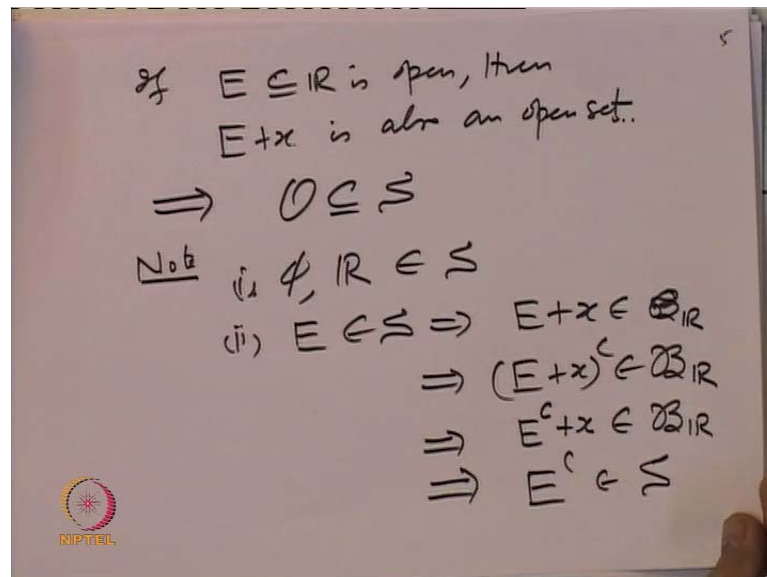 5
If E ⊆ ℝ is open, then
E+x is also an open set..
⟹ O ⊆ S
Note (i) ϕ, ℝ ∈ S
(ii) E ∈ S ⟹ E+x ∈ B_ℝ
⟹ (E+x)^c ∈ B_ℝ
⟹ E^c+x ∈ B_ℝ
⟹ E^c ∈ S
NPTEL